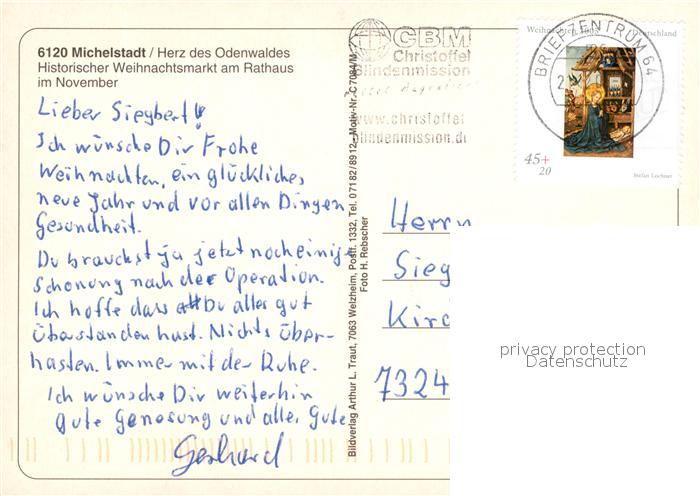 6120 Michelstadt / Herz des Odenwaldes
Historischer Weihnachtsmarkt am Rathaus
im November
Lieber Siegbert!
Ich wünsche Dir Frohe
Weihnachten, ein glückliches
neue Jahr und vor allen Dingen
Gesundheit.
Du brauchst ja jetzt noch einige
Schonung nach der Operation.
Ich hoffe dass Du alles gut
überstanden hast. Nichts über-
hasten. Immer mit der Ruhe.
Ich wünsche Dir weiterhin
gute Genesung und alles Gute
Gerhard
Bildverlag Arthur L. Traut, 7063 Welzheim, Postf. 1332, Tel. 07182/8912 - Motiv-Nr. C 7084/M
Foto H. Rebscher
CBM
Christoffel
Blindenmission
www.christoffel
blindenmission.de
BRIEFZENTRUM 64
Weihnachten
Deutschland
45+
20
Stefan Lochner
Herrn
Sieg
Kirc
7324
privacy protection
Datenschutz